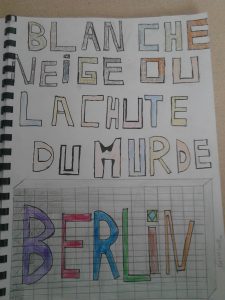 BLANCHE
NEIGE OU
LA CHUTE
DU MURDE
BERLIN